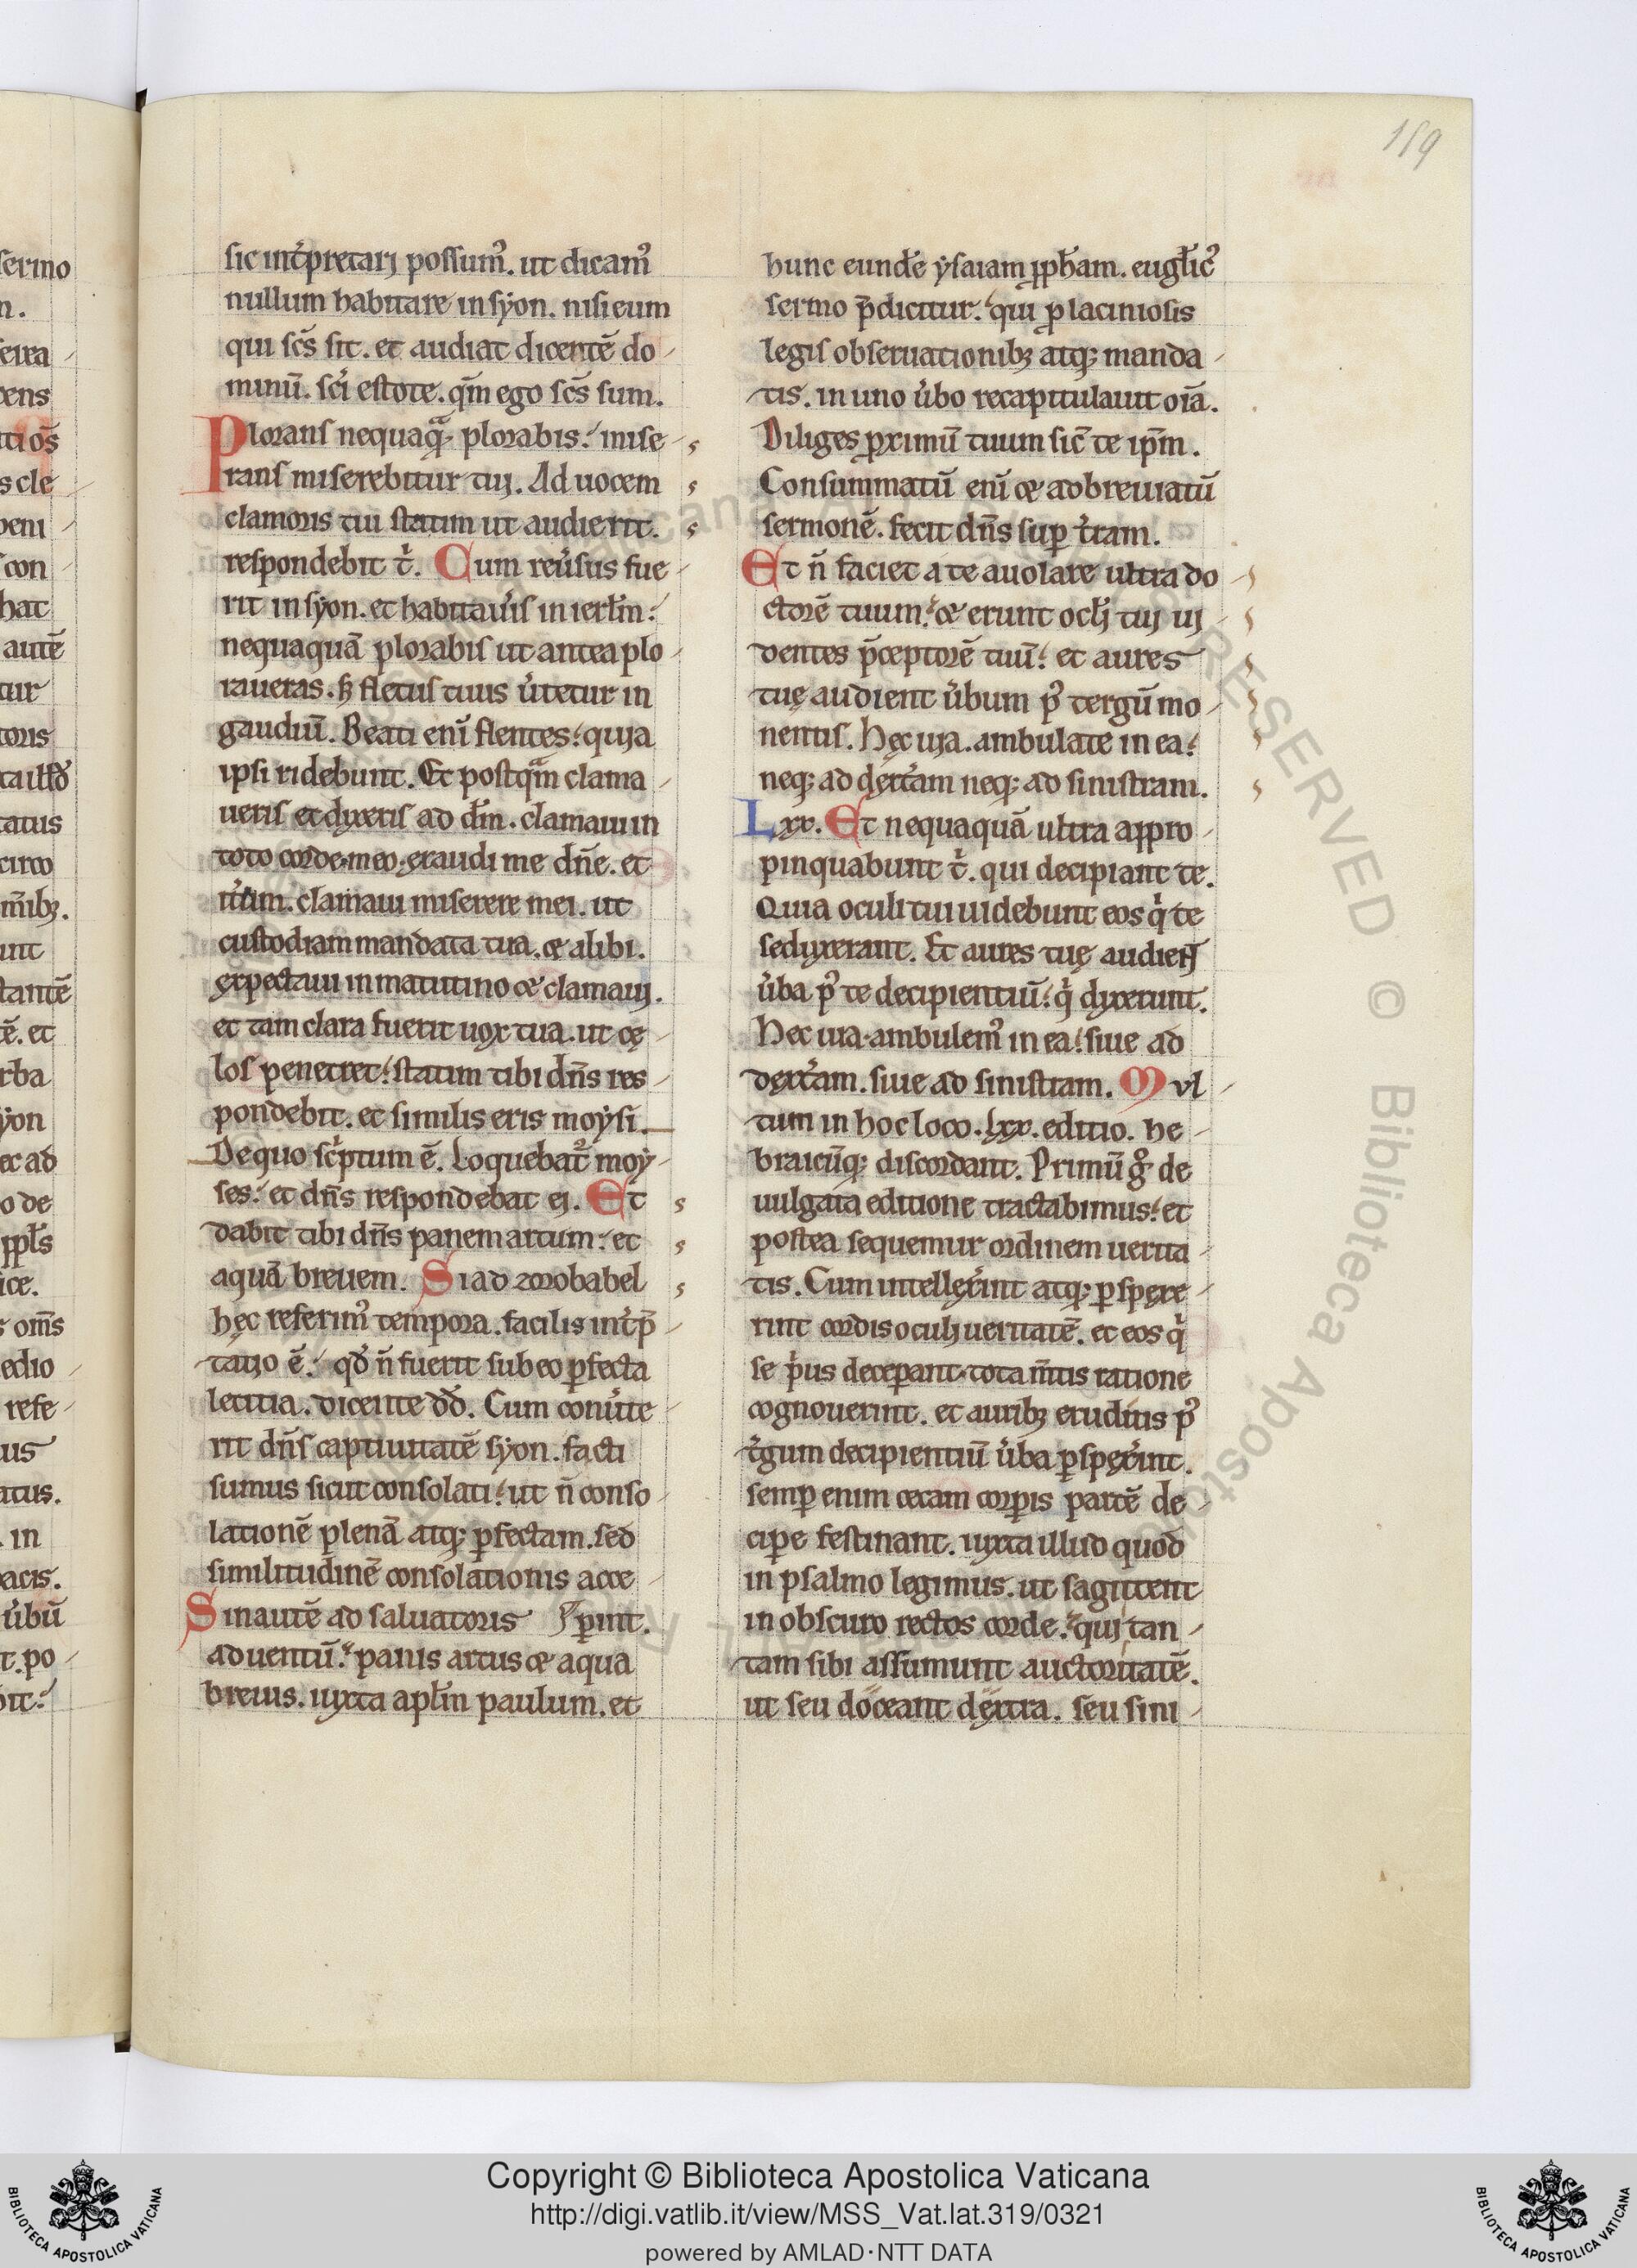 159
sic int̉p̄tarj possum᷒. ut dicam᷒
nullum habitare in sẏon. nisi eum
qui sc̄s sit. et audiat dicentē do
minū. sc̄i estote. qm̄ ego sc̄s sum.
Plorans nequaqͣ; plorabis. mise
rans miserebitur tuj. Ad uocem
clamoris tui statim ut audierit.
respondebit t̉. Cum reu̕sus fue
rit in sẏon. et habitau̕is in ierłm.
nequaquā plorabis ut antea plo
raueras. ꝫ fletus tuus u̕tetur in
gaudiū. Beati enī flentes. quia
ipsi ridebunt. Et postqm̄ clama
ueris et dixeris ad dn̄m. clamaui in
toto corde meo. exaudi me dn̄e. et
it̕um. clamaui miserere mei. ut
custodiam mandata tua. & alibi.
expectaui in matutino & clamauj.
et tam clara fuerit uox tua. ut cę
los penetret. statim tibi dn̄s res
pondebit. et similis eris moẏsi.
De quo sc̕ptum ē. Loquebat᷒ moẏ
ses. et dn̄s respondebat ej. Et
dabit tibi dn̄s panem artum. et
aquā breuem. Si ad zorobabel
hęc referim᷒ tempora. facilis int̕p̄
tatio ē. qđ n̄ fuerit sub eo ꝑfecta
letitia. dicente dđ. Cum conu̕te
rit dn̄s captiuitatē sẏon. facti
sumus sicut consolati. ut n̄ conso
lationē plenā atq; ꝑfectam. sed
similitudinē consolationis acce
Sin autē ad saluatoris ꝑint.
aduentū. panis artus & aqua
breuis. iuxta apłm paulum. et
hunc eunde̅ ẏsaiam ꝓph̄am. eugłic᷒
sermo p̄dicitur. qui ꝓ laciniosis
legis obseruationibꝫ atq; manda
tis. in uno u̕bo recapitulauit oīa.
Diliges ꝓximū tuum sic̄ te ipm̄.
Consummatū enī & adbreuiatū
sermonē. fecit dn̄s suꝑ t̕ram.
Et n̄ faciet a te auolare ultra do
ctorē tuum. & erunt oclj tuj uj
dentes p̄ceptorē tuū. et aures
tuę audient u̕bum p᷒ tergū mo
nentis. Hęc uia. ambulate in ea.
neq; ad dext̕am neq; ad sinistram.
Lxx. Et nequaquā ultra appro
pinquabunt t̉. qui decipiant te.
Quia oculi tui uidebunt eos q̉ te
seduxerant. Et aures tuę audient
u̕ba p᷒ te decipientiū. q̉ dixerunt.
Hec uia. ambulem᷒ in ea. siue ad
dext̕am. siue ad sinistram. Mvl
tum in hoc loco. lxx. editio. he
braicūq; discordant. Primū gͦ de
uulgata editione tractabimus. et
postea sequemur ordinem uerita
tis. Cum intellex̕int atq; ꝑspexe
rint cordis oculj ueritatē. et eos q̉
se p̉us deceꝑant. tota m̄tis ratione
cognouerint. et auribꝫ eruditis p᷒
t̕gum decipientiū u̕ba ꝑspex̕int.
semꝑ enim cecam corꝑis partē de
ciꝑe festinant. iuxta illud quod
in psalmo legimus. ut sagittent
in obscuro rectos corde. qui tan
tam sibi assumunt auctoritatē.
ut seu doceant dextra. seu sini
Copyright © Biblioteca Apostolica Vaticana
http://digi.vatlib.it/view/MSS_Vat.lat.319/0321
powered by AMLAD·NTT DATA